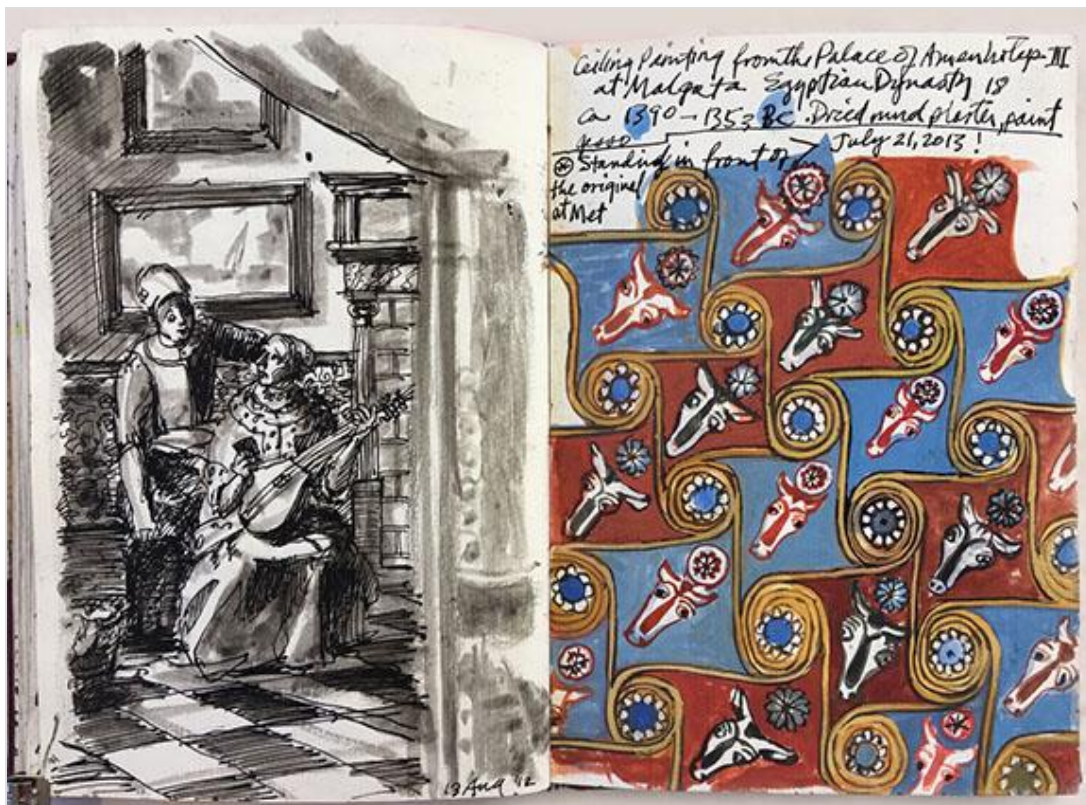 Ceiling Painting from the Palace of Amenhotep III
at Malqata Egyptian Dynasty 18
ca 1390 – 1353 BC. Dried mud plaster, paint
gesso
July 21, 2013!
⊛ Standing in front of
the original
at Met
13 Aug '12